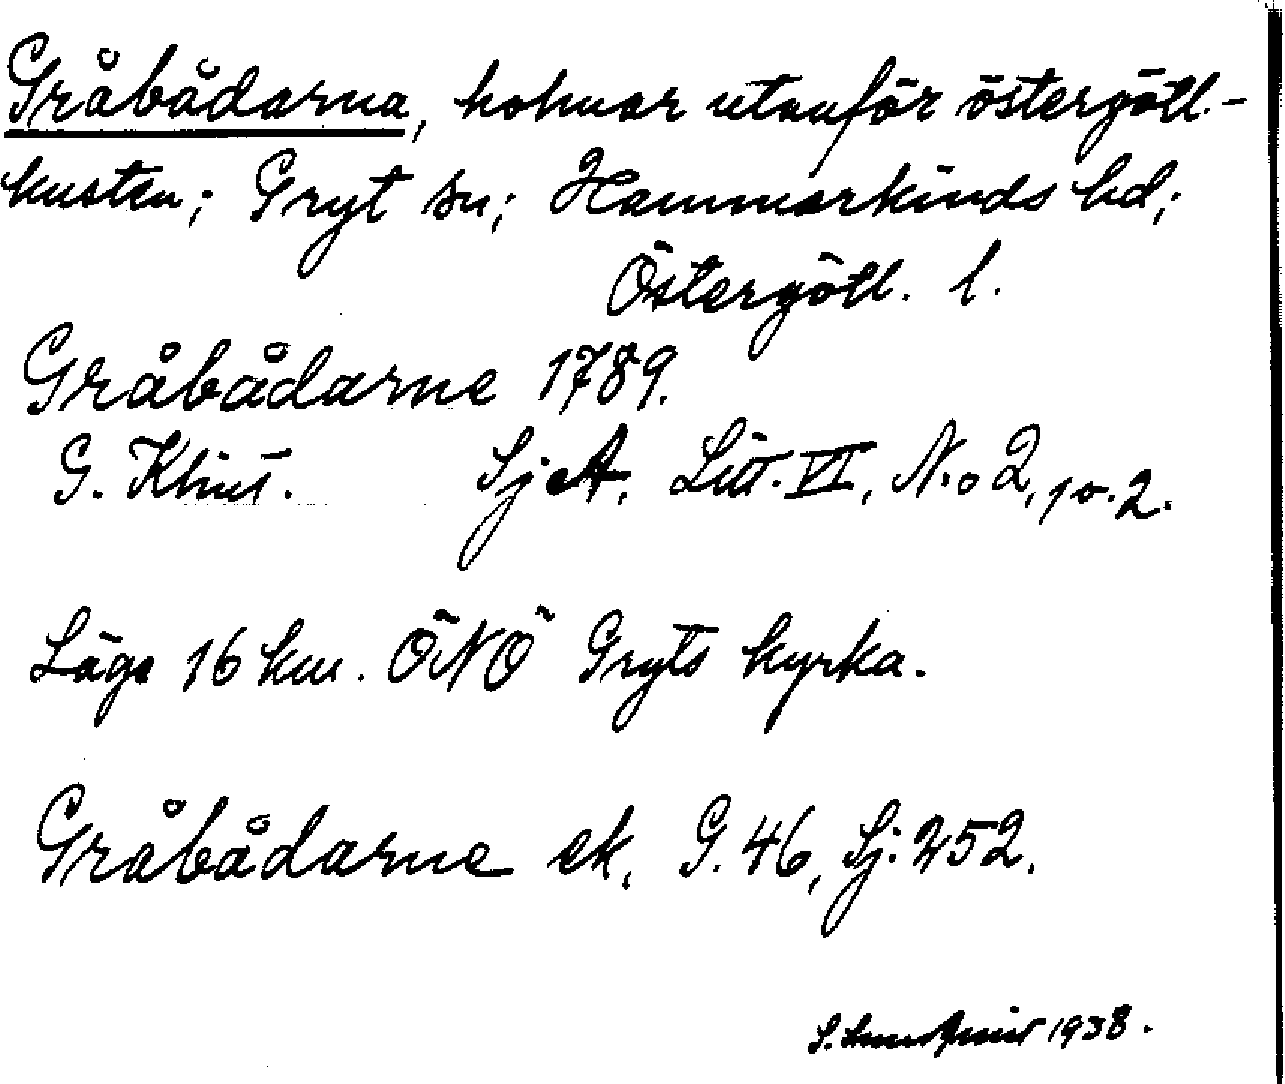 Gråbådarna, holmar utanför östergötl.-
kusten; Gryt sn; Hammarkinds hd;
Östergötl. l.
Gråbådarne 1789.
G. Klint. SjA. Litt. VI, N:o 2, p. 2.
Läge 16 km. ÖNÖ Gryts kyrka.
Gråbådarne ek. G. 46, Sj. 252.
1938.